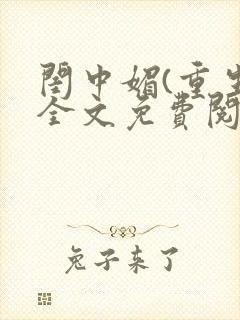 閨中媚(重生
全文免費閱
兔子来了